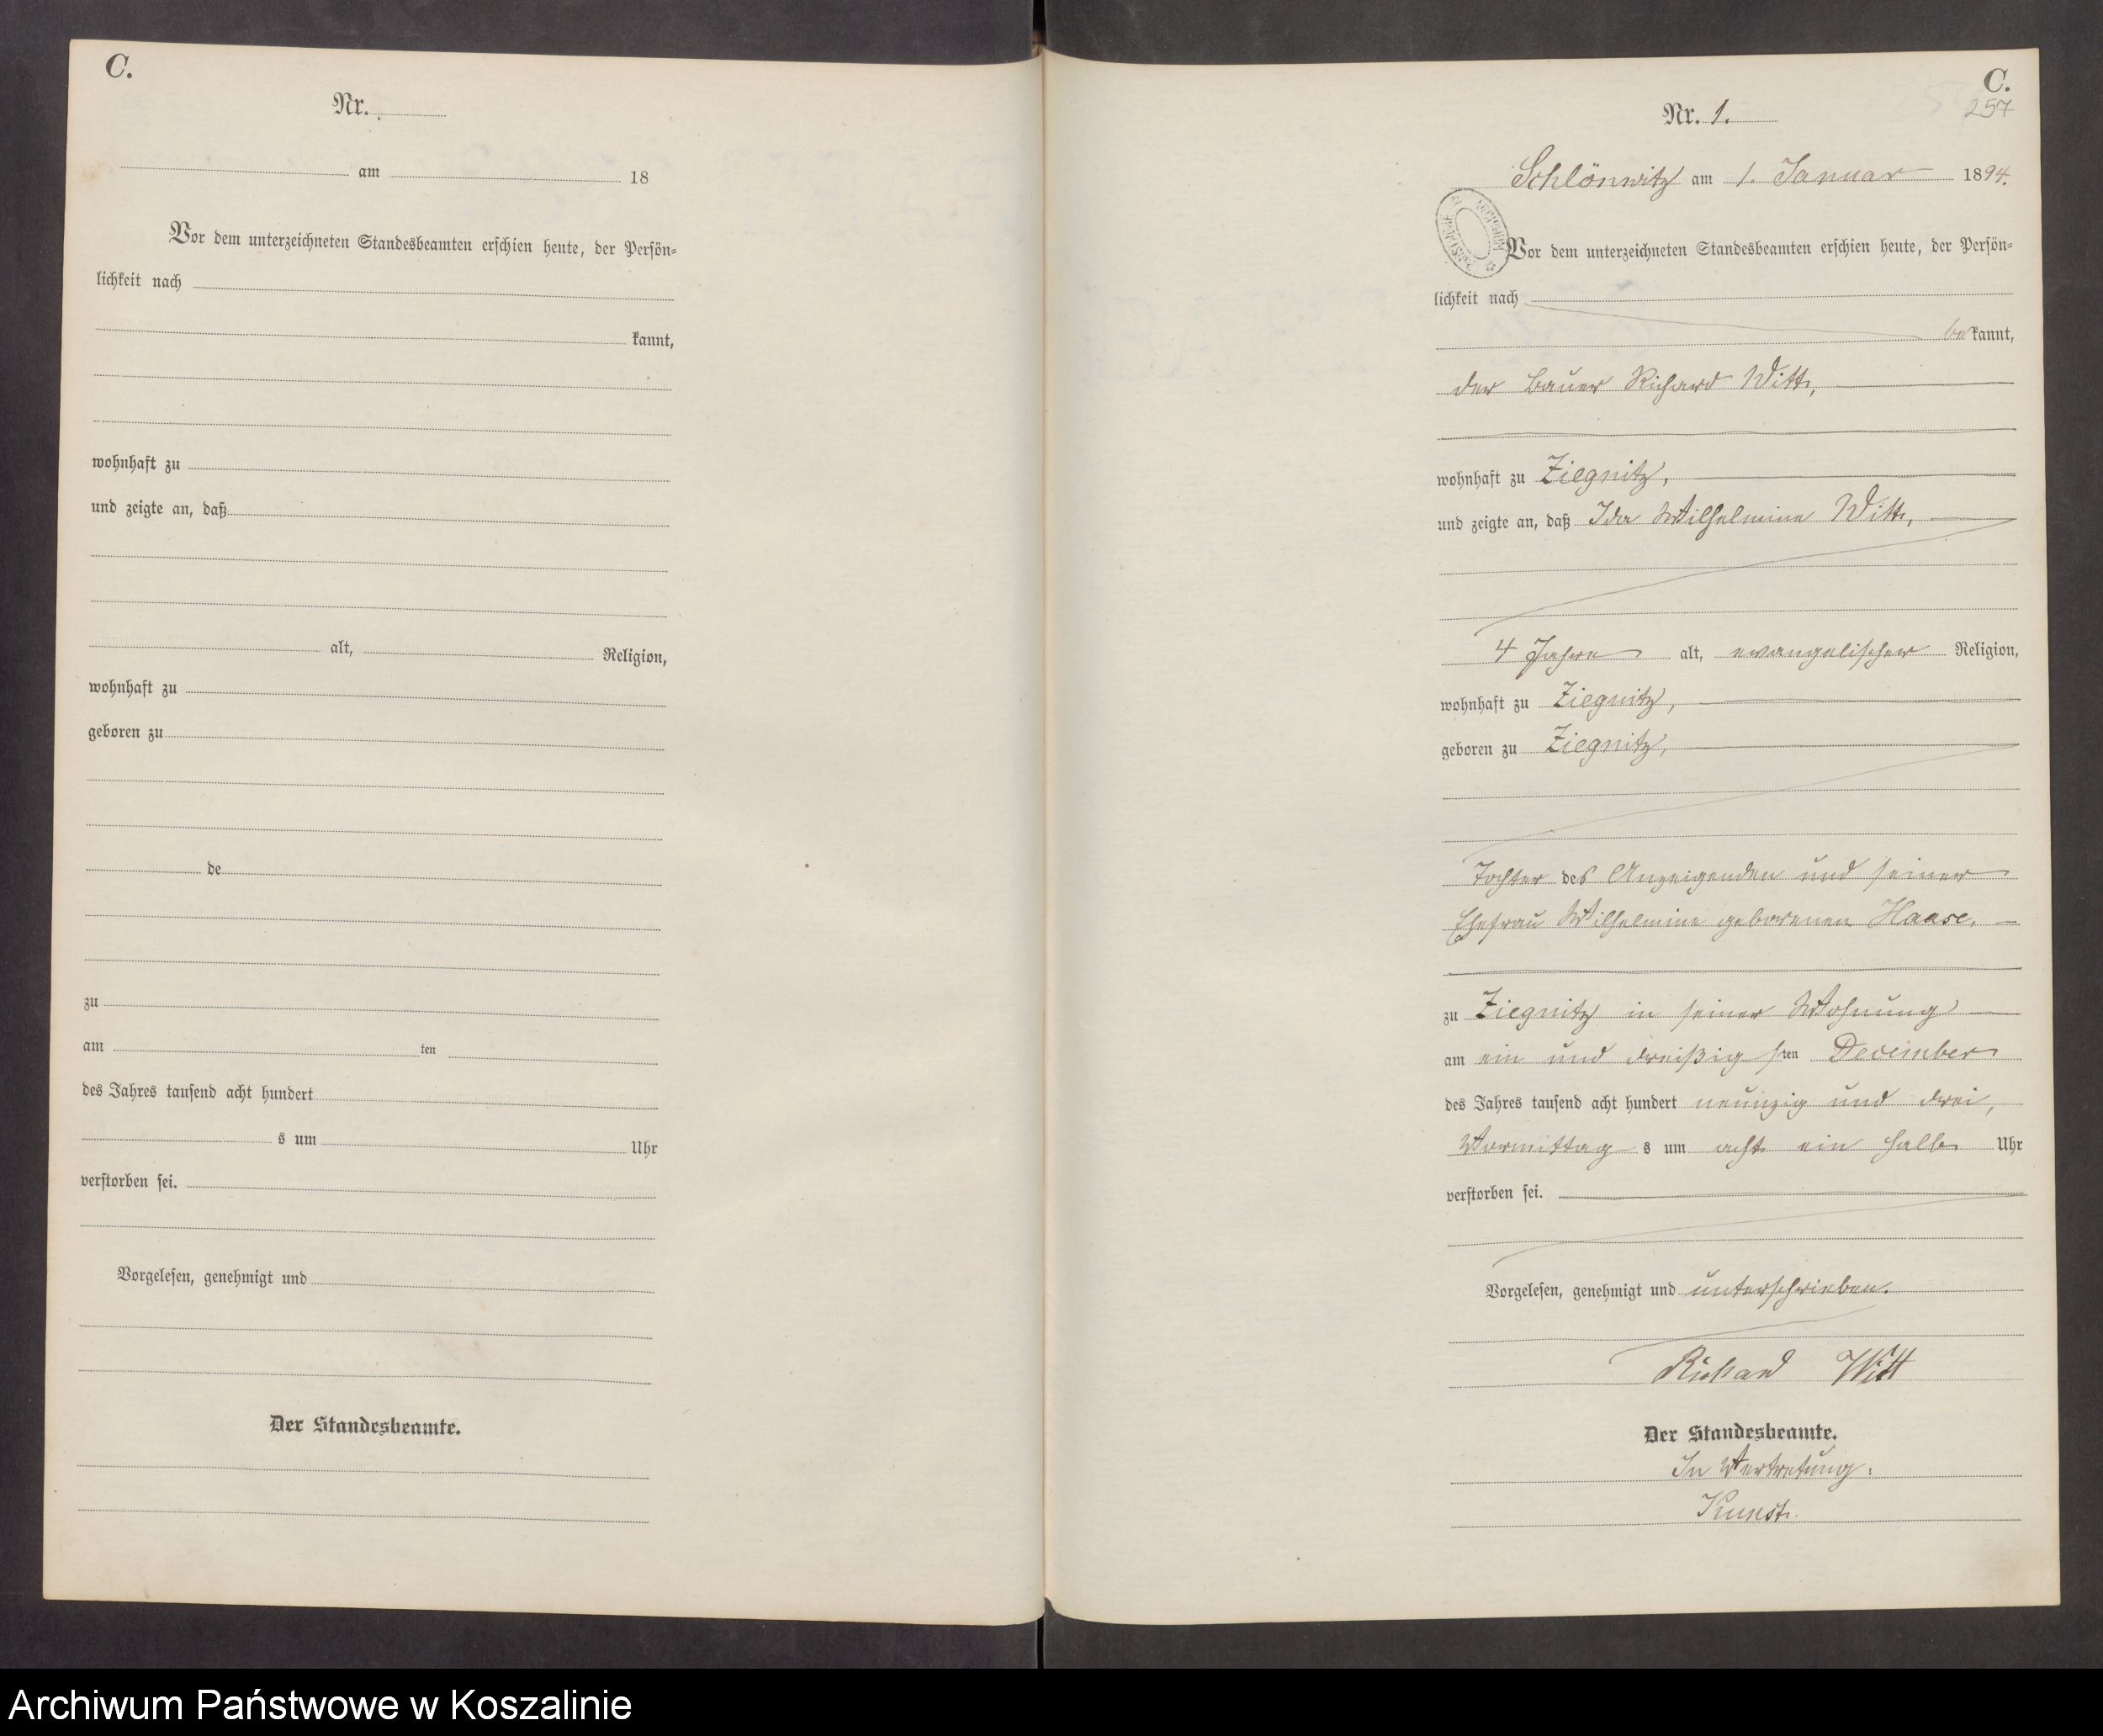 C.
Nr.
am 18
Vor dem unterzeichneten Standesbeamten erschien heute, der Persön=
lichkeit nach
kannt,
wohnhaft zu
und zeigte an, daß
alt, Religion,
wohnhaft zu
geboren zu
de
zu
am ten
des Jahres tausend acht hundert
s um Uhr
verstorben sei.
Vorgelesen, genehmigt und
Der Standesbeamte.
C.
257
Nr. 1.
Schlönwitz am 1. Januar 1894.
Vor dem unterzeichneten Standesbeamten erschien heute, der Persön=
lichkeit nach
bekannt,
der Bauer Richard Witt,
wohnhaft zu Ziegnitz,
und zeigte an, daß Ida Wilhelmine Witt,
4 Jahre alt, evangelischer Religion,
wohnhaft zu Ziegnitz,
geboren zu Ziegnitz,
Tochter des Anzeigenden und seiner
Ehefrau Wilhelmine geborenen Haase,
zu Ziegnitz in seiner Wohnung
am ein und dreißigsten December
des Jahres tausend acht hundert neunzig und drei,
Vormittags um acht ein halb Uhr
verstorben sei.
Vorgelesen, genehmigt und unterschrieben.
Richard Witt
Der Standesbeamte.
In Vertretung:
Kunst.
Archiwum Państwowe w Koszalinie